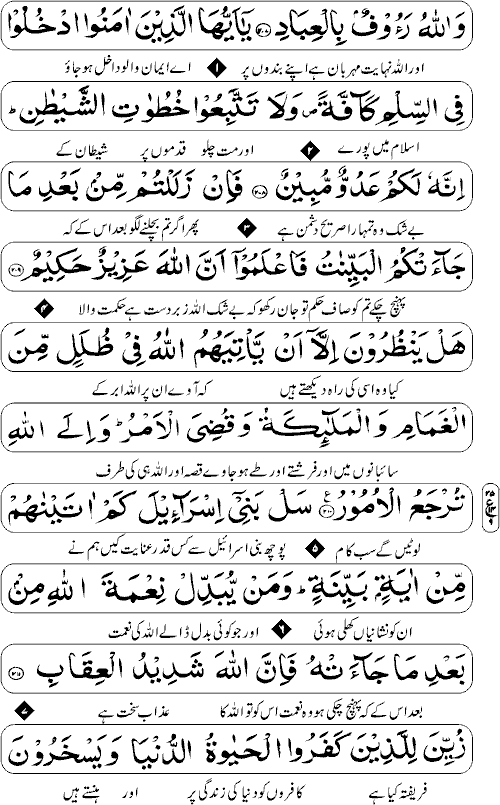 وَاللّٰهُ رَءُوْفٌۢ بِالْعِبَادِ ﴿۲۰۷﴾ يٰٓاَيُّهَا الَّذِيْنَ اٰمَنُوا ادْخُلُوْا
اور اللہ نہایت مہربان ہے اپنے بندوں پر ۱ اے ایمان والو داخل ہو جاؤ
فِى السِّلْمِ كَآفَّةً ۪ وَلَا تَتَّبِعُوْا خُطُوٰتِ الشَّيْطٰنِ ؕ
اسلام میں پورے ۲ اور مت چلو قدموں پر شیطان کے
اِنَّهٗ لَكُمْ عَدُوٌّ مُّبِيْنٌ ﴿۲۰۸﴾ فَاِنْ زَلَلْتُمْ مِّنْۢ بَعْدِ مَا
بے شک وہ تمہارا صریح دشمن ہے ۳ پھر اگر تم بچلنے لگو بعد اس کے کہ
جَآءَتْكُمُ الْبَيِّنٰتُ فَاعْلَمُوْٓا اَنَّ اللّٰهَ عَزِيْزٌ حَكِيْمٌ ﴿۲۰۹﴾
پہنچ چکے تم کو صاف حکم تو جان رکھو کہ بے شک اللہ زبردست ہے حکمت والا ۴
هَلْ يَنْظُرُوْنَ اِلَّآ اَنْ يَّاْتِيَهُمُ اللّٰهُ فِىْ ظُلَلٍ مِّنَ
کیا وہ اسی کی راہ دیکھتے ہیں کہ آوے ان پر اللہ ابر کے
الْغَمَامِ وَالْمَلٰٓئِكَةُ وَقُضِىَ الْاَمْرُ ؕ وَاِلَى اللّٰهِ
سائبانوں میں اور فرشتے اور طے ہو جاوے قصہ اور اللہ ہی کی طرف
تُرْجَعُ الْاُمُوْرُ ﴿۲۱۰﴾ ع سَلْ بَنِىْٓ اِسْرَآءِيْلَ كَمْ اٰتَيْنٰهُمْ
لوٹیں گے سب کام ۵ پوچھ بنی اسرائیل سے کس قدر عنایت کیں ہم نے
مِّنْ اٰيَةٍۭ بَيِّنَةٍ ؕ وَمَنْ يُّبَدِّلْ نِعْمَةَ اللّٰهِ مِنْۢ
ان کو نشانیاں کھلی ہوئی ۶ اور جو کوئی بدل ڈالے اللہ کی نعمت
بَعْدِ مَا جَآءَتْهُ فَاِنَّ اللّٰهَ شَدِيْدُ الْعِقَابِ ﴿۲۱۱﴾
بعد اس کے کہ پہنچ چکی ہو وہ نعمت اس کو تو اللہ کا عذاب سخت ہے ۷
زُيِّنَ لِلَّذِيْنَ كَفَرُوا الْحَيٰوةُ الدُّنْيَا وَيَسْخَرُوْنَ
فریفتہ کیا ہے کافروں کو دنیا کی زندگی پر اور ہنستے ہیں